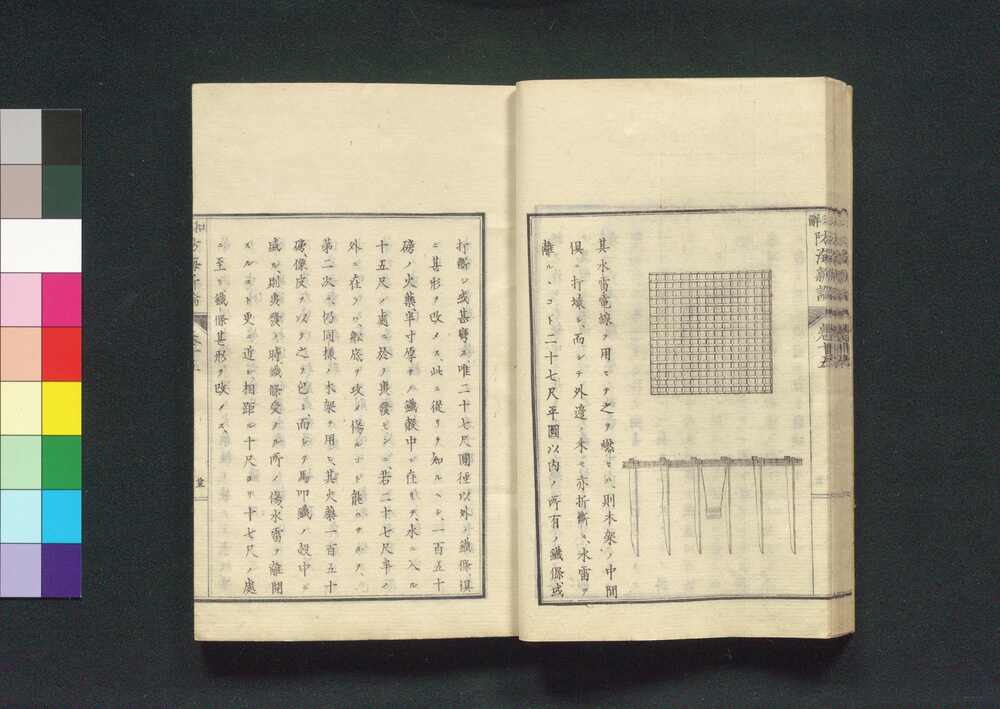 其水雷電線ヲ用ヒテ之ヲ燃セハ、則木架ノ中間
俱ニ打壊シ、而シテ外邉ノ木モ亦折斷ス、水雷ヲ
離ルヽコト二十七尺平圓以内ノ所有ノ鐵條或
打斷シ或甚彎ス、唯二十七尺圓徑以外ノ鐵條俱
ニ甚形ヲ改メス、此ニ從リテ知ルヘシ、一百五十
磅ノ火藥牢寸厚ノ鐵殻中ニ在リテ、水ニ入ル
十五尺ノ處ニ於テ轟發セシニ、若二十七尺半ノ
外ニ在ラハ、船底ヲ攻メ傷ルコト能ハサルヲ、
第二次ハ仍同樣ノ木架ヲ用ヒ、其火藥一百五十
磅、像皮ヲ以テ之ヲ包ミ、而シテ馬叩鐵ノ殻中ニ
盛ル、則轟發ノ時鐵條受クル所ノ傷、水雷ヲ離開
スルコト更ニ近シ、相距ル十尺ヨリ十七尺ノ處
ニ至リ鐵條甚形ヲ改メス、